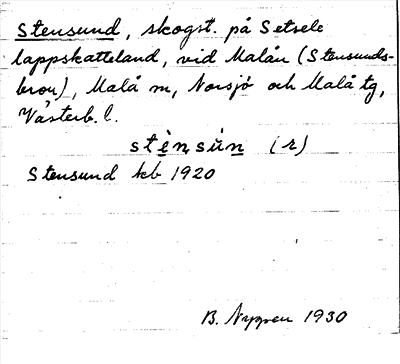 Stensund, skogst. på Setsele
lappskatteland, vid Malån (Stensunds-
bron), Malå m, Norsjö och Malå tg,
Västerb. l.
stènsùn (r)
Stensund kb 1920
B. 1930